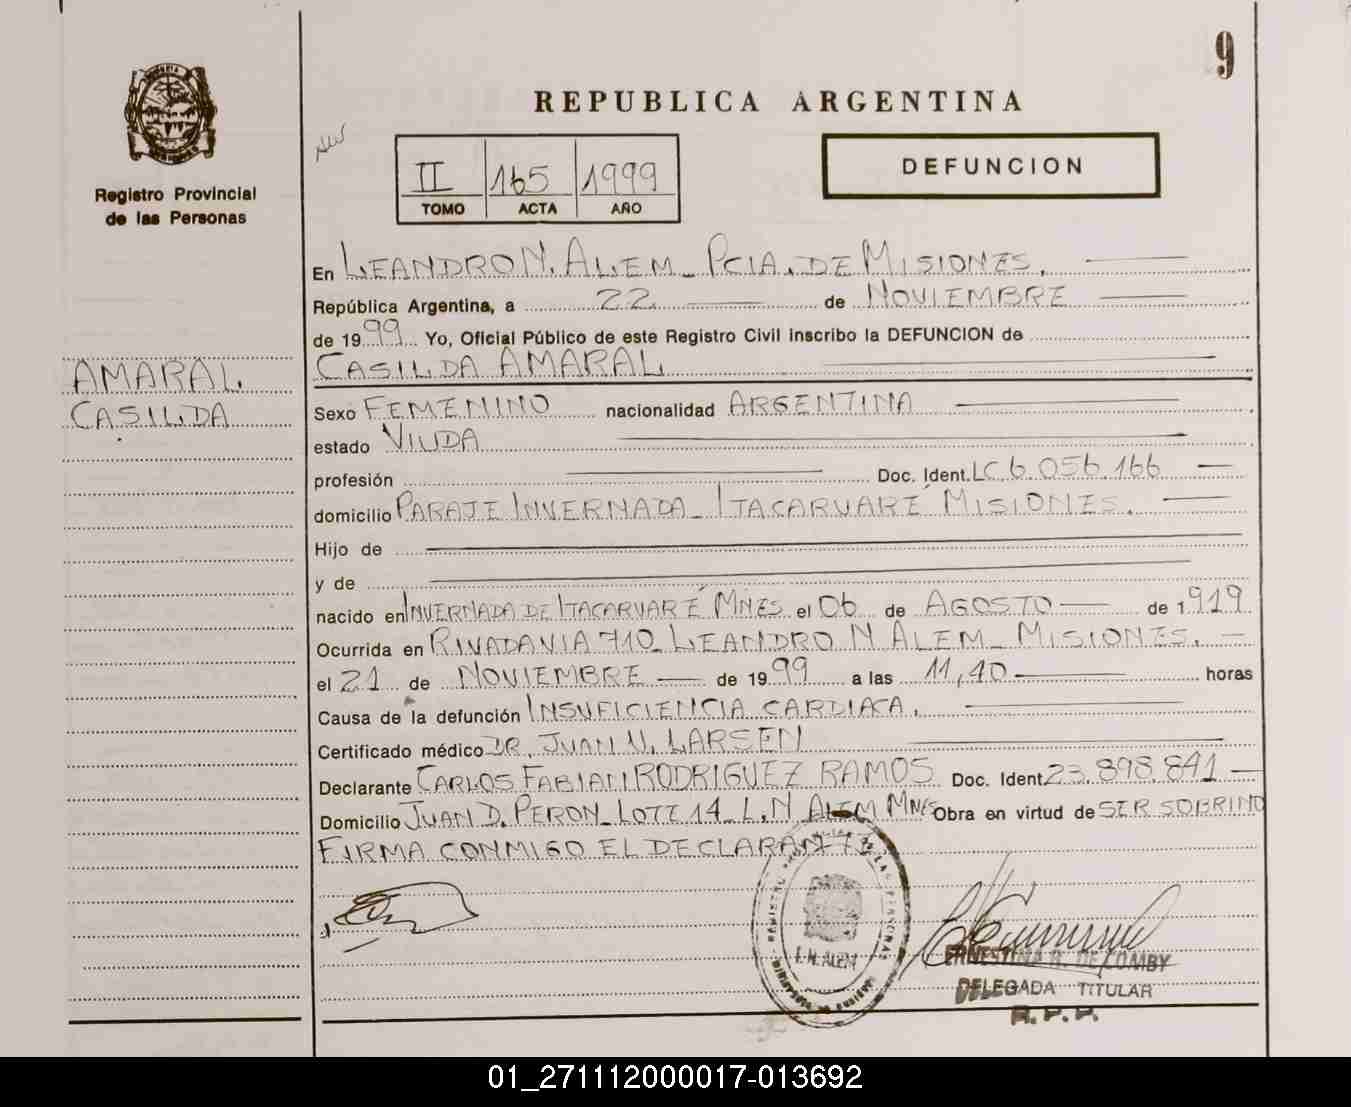 9
REPUBLICA ARGENTINA
Registro Provincial
de las Personas
II 165 1999
TOMO ACTA AÑO
DEFUNCION
En LEANDRO N. ALEM - PCIA. DE MISIONES.
República Argentina, a 22 de NOVIEMBRE
de 1999 Yo, Oficial Público de este Registro Civil inscribo la DEFUNCION de
CASILDA AMARAL
AMARAL
CASILDA
Sexo FEMENINO nacionalidad ARGENTINA
estado VIUDA
profesión Doc. Ident. LC 6.056.166
domicilio PARAJE INVERNADA - ITACARUARÉ MISIONES.
Hijo de
y de
nacido en INVERNADA DE ITACARUARÉ MNES el 06 de AGOSTO de 1919
Ocurrida en RIVADAVIA 710 - LEANDRO N ALEM - MISIONES.
el 21 de NOVIEMBRE de 1999 a las 11,40 horas
Causa de la defunción INSUFICIENCIA CARDIACA.
Certificado médico DR. JUAN N. LARSEN
Declarante CARLOS FABIAN RODRIGUEZ RAMOS Doc. Ident 23.898.841
Domicilio JUAN D. PERON - LOTE 14 - L.N ALEM MNES Obra en virtud de SER SOBRINO
FIRMA CONMIGO EL DECLARANTE
L.N. ALEM
ERNESTINA R. DE COMBY
DELEGADA TITULAR
R.P.P.
01_271112000017-013692